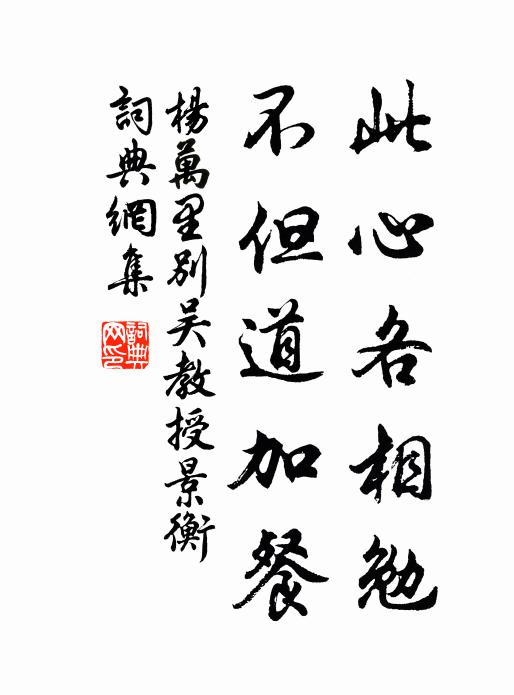 此心各相勉
不但道加餐
楊萬里别吴教授景衡
詞典網集
詞典網印